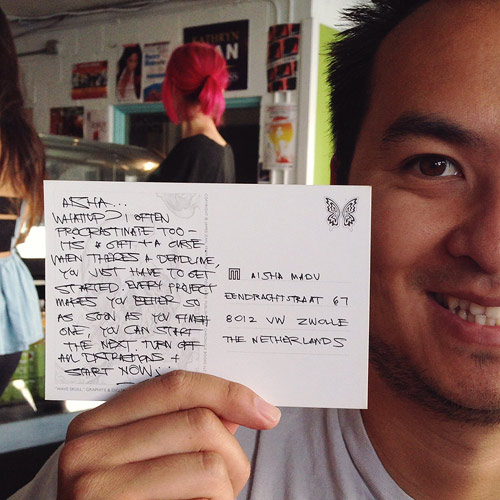 AISHA...
WHATTUP? I OFTEN
PROCRASTINATE TOO -
ITS A GIFT + A CURSE
WHEN THERE'S A DEADLINE,
YOU JUST HAVE TO GET
STARTED. EVERY PROJECT
MAKES YOU BETTER SO
AS SOON AS YOU FINISH
ONE, YOU CAN START
THE NEXT. TURN OFF
ALL DISTRACTIONS +
START NOW...
AISHA MADU
EENDRACHTSTRAAT 67
8012 VW ZWOLLE
THE NETHERLANDS
KATHRYN